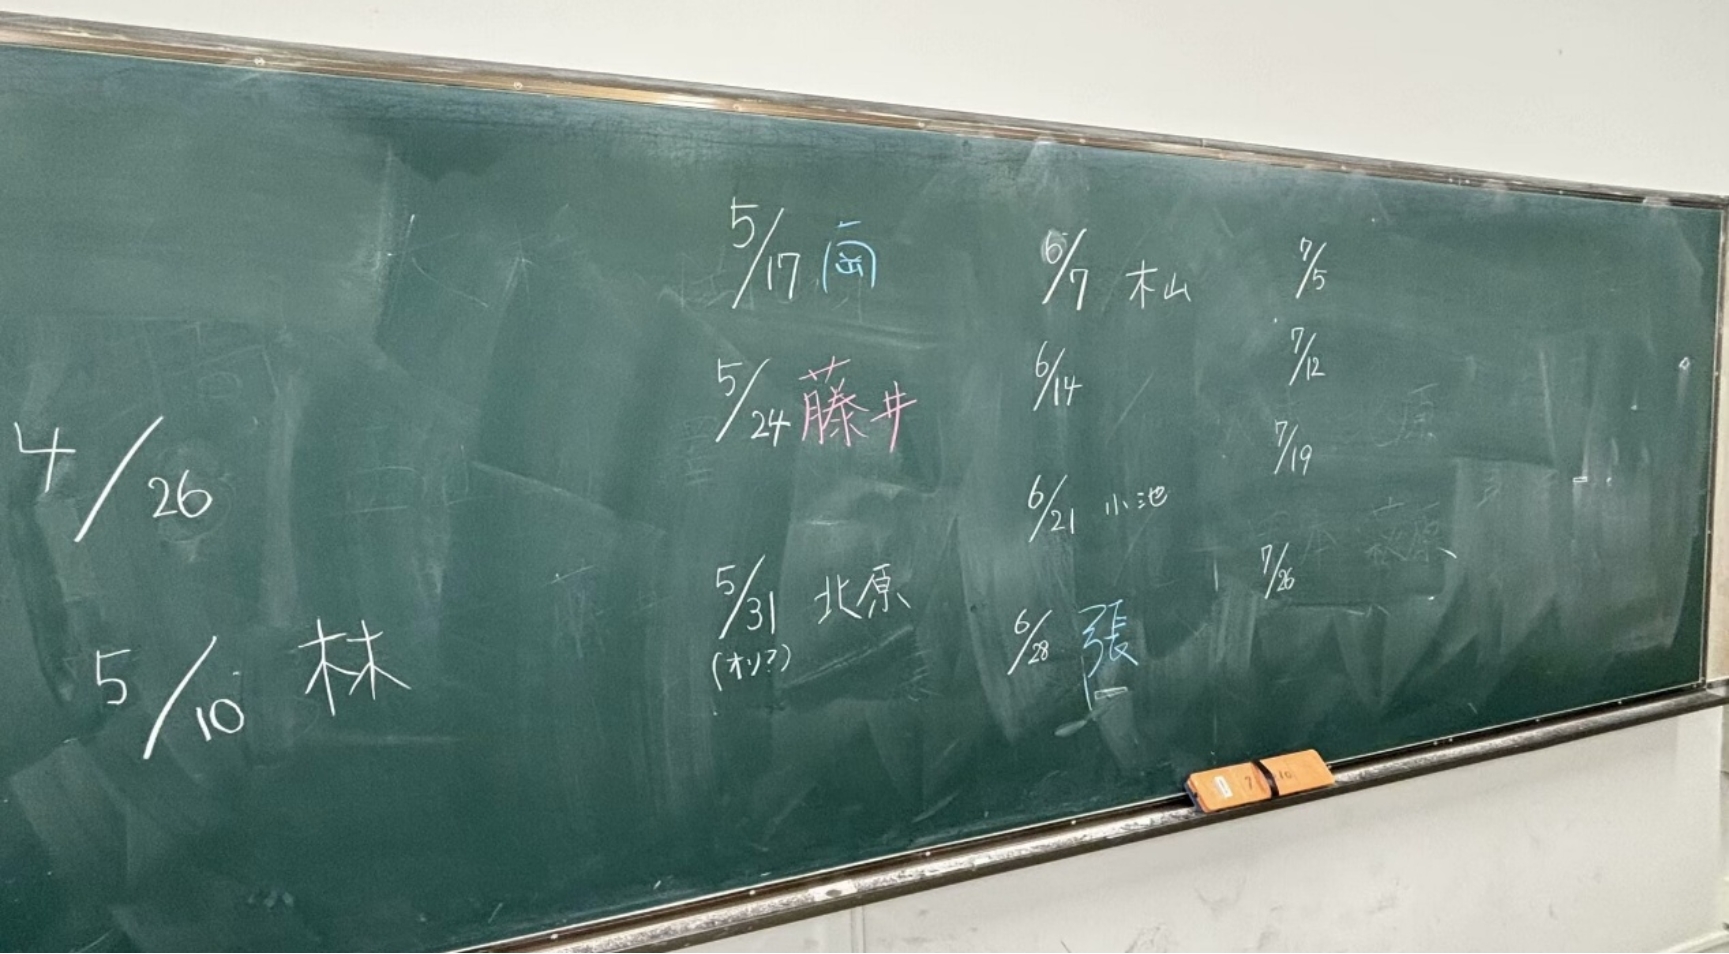 4/26
5/10 林
5/17
5/24 藤井
5/31 北原
(オリ?)
6/7 木山
6/14
6/21 小池
6/28 張
7/5
7/12
7/19
7/26